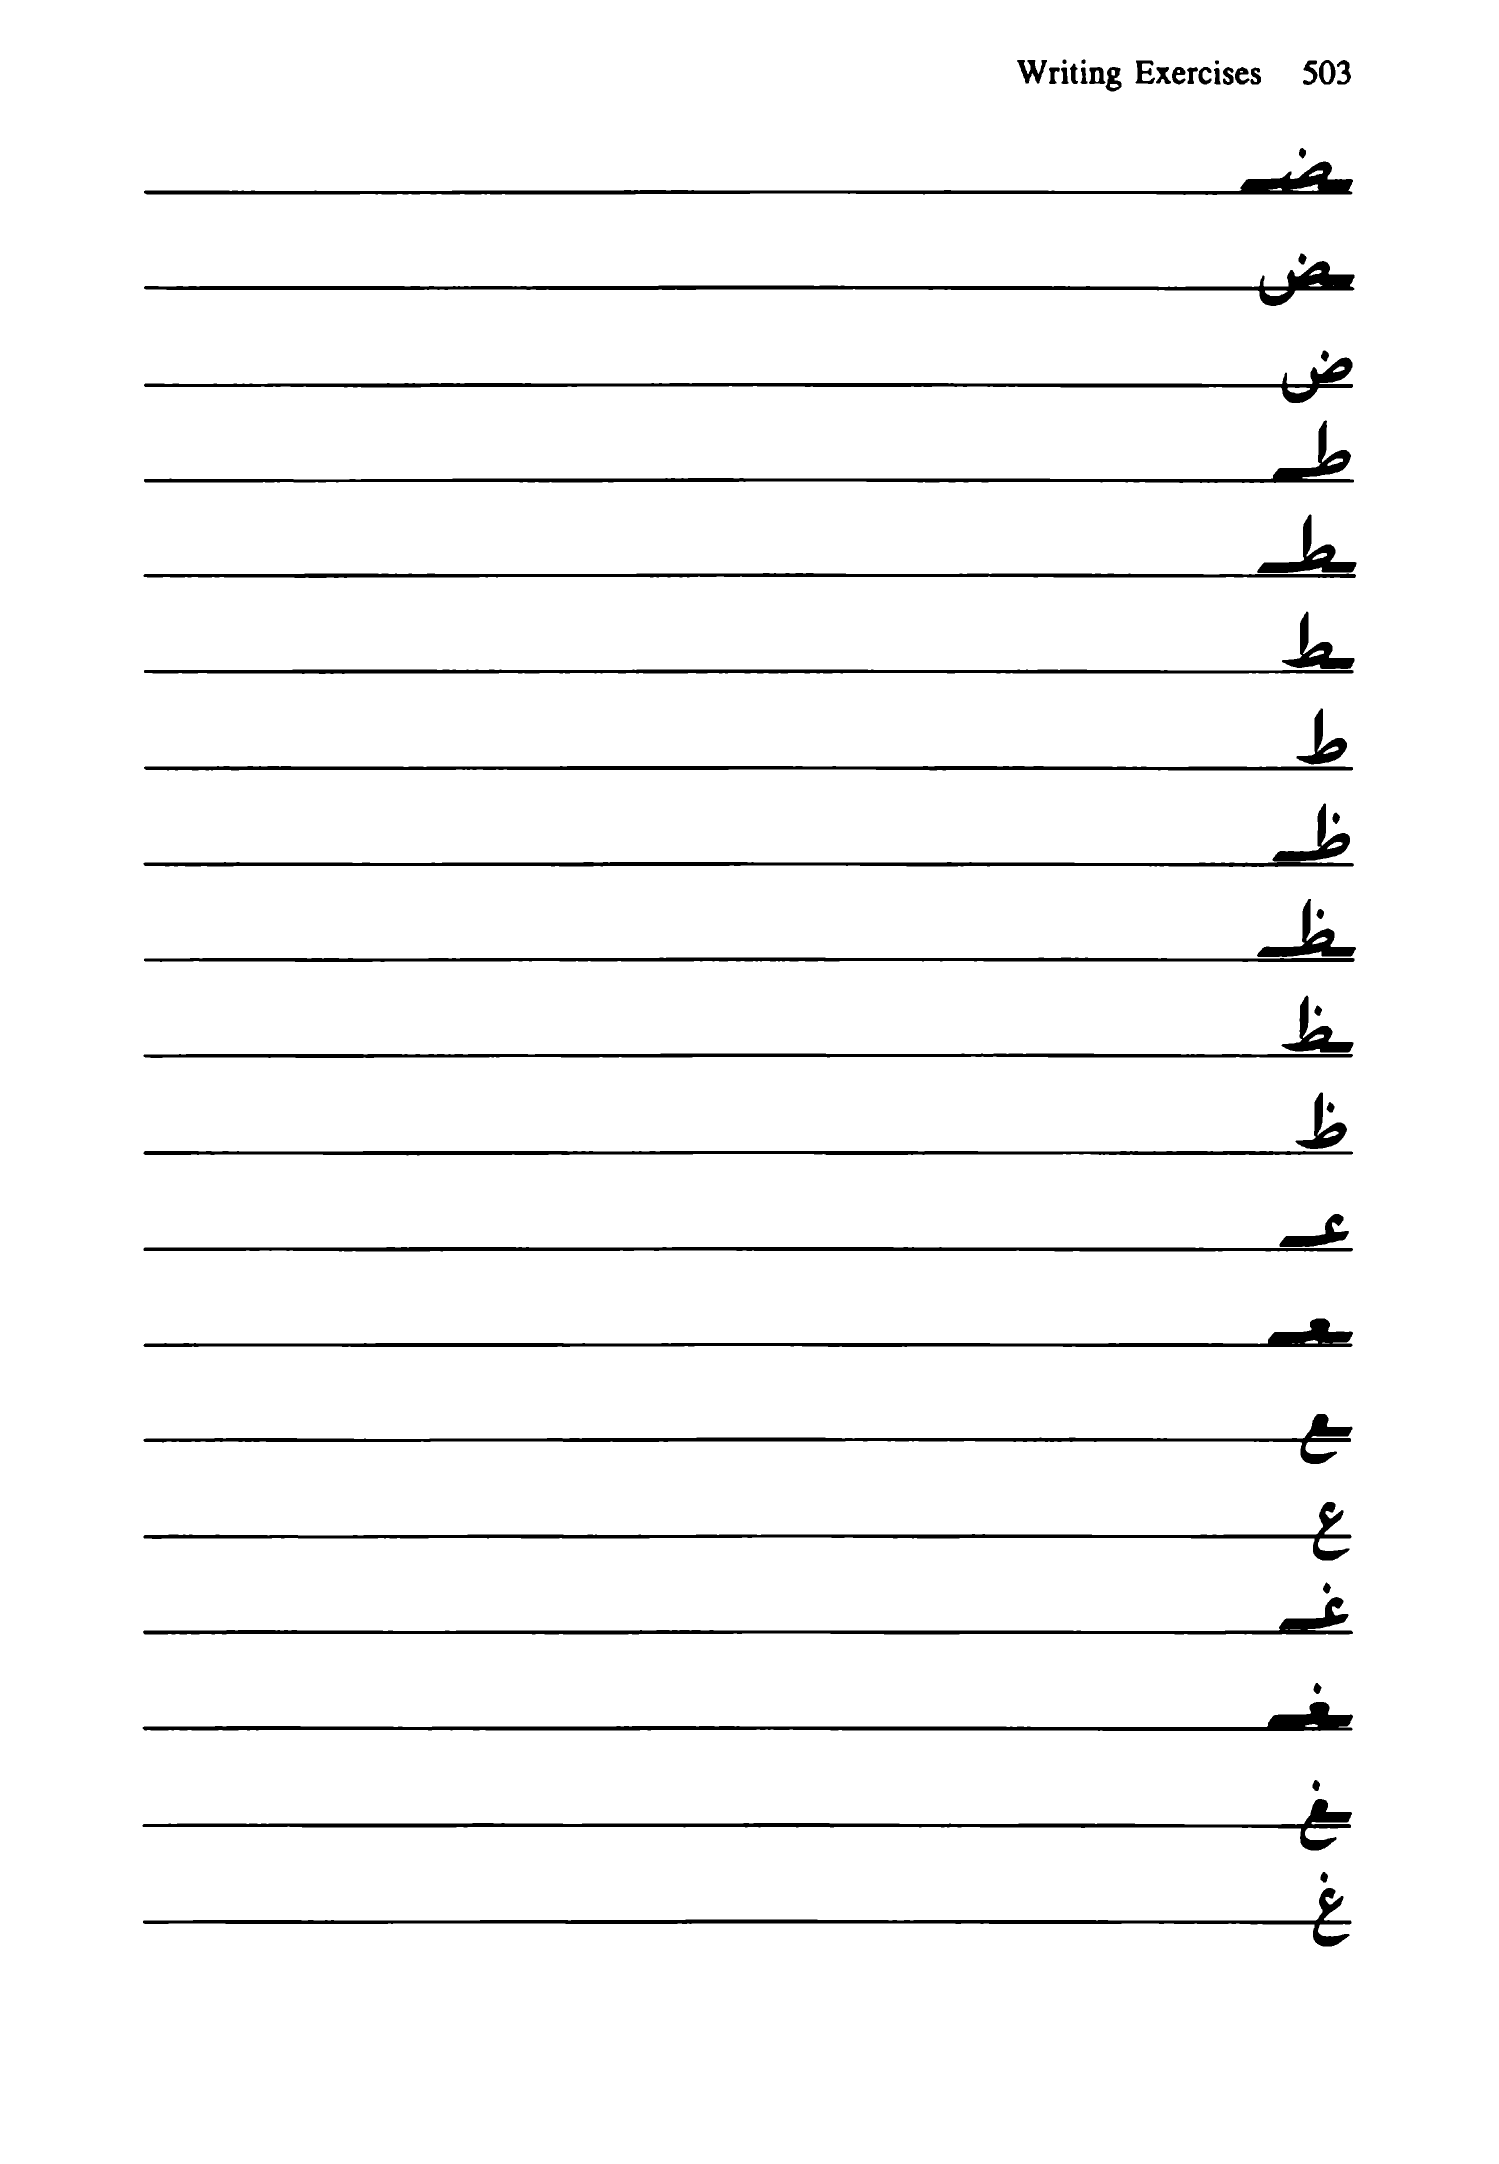 Writing Exercises 503
ـضـ
ـض
ض
طـ
ـطـ
ـط
ط
ظـ
ـظـ
ـظ
ظ
عـ
ـعـ
ـع
ع
غـ
ـغـ
ـغ
غ